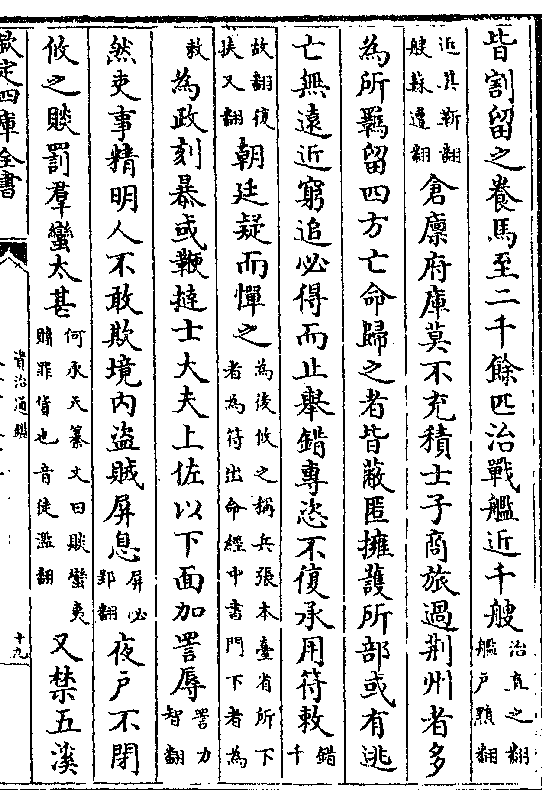 皆割留之養馬至二千餘匹治戰艦近千艘治直之翻艦户黯翻
近其靳翻艘蘇遭翻倉廩府庫莫不充積士子商旅過荆州者多
為所羈留四方亡命歸之者皆蔽匿擁護所部或有逃
亡無遠近窮追必得而止舉錯專恣不復承用符敕錯千
故翻復扶又翻朝廷疑而憚之為後攸之稱兵張本臺省所下者為符出命經中書門下者為
敕為政刻暴或鞭撻士大夫上佐以下面加詈辱詈力智翻
然吏事精明人不敢欺境内盗賊屏息屏必郢翻夜户不閉
攸之賧罰羣蠻太甚何承天纂文曰賧蠻夷贖罪貨也音徒濫翻又禁五溪
欽定四庫全書
資治通鑑
十九